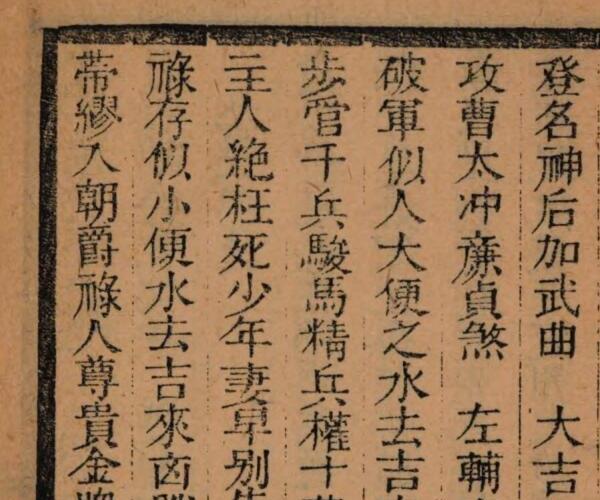 登名神后加武曲 大吉
攻曹太冲廉貞煞 左輔
破軍似人大便之水去吉
步管千兵駿馬精兵權十
二主人絶枉死少年妻早别
祿存似小便水去吉來凶
帶繆入朝爵祿人尊貴金